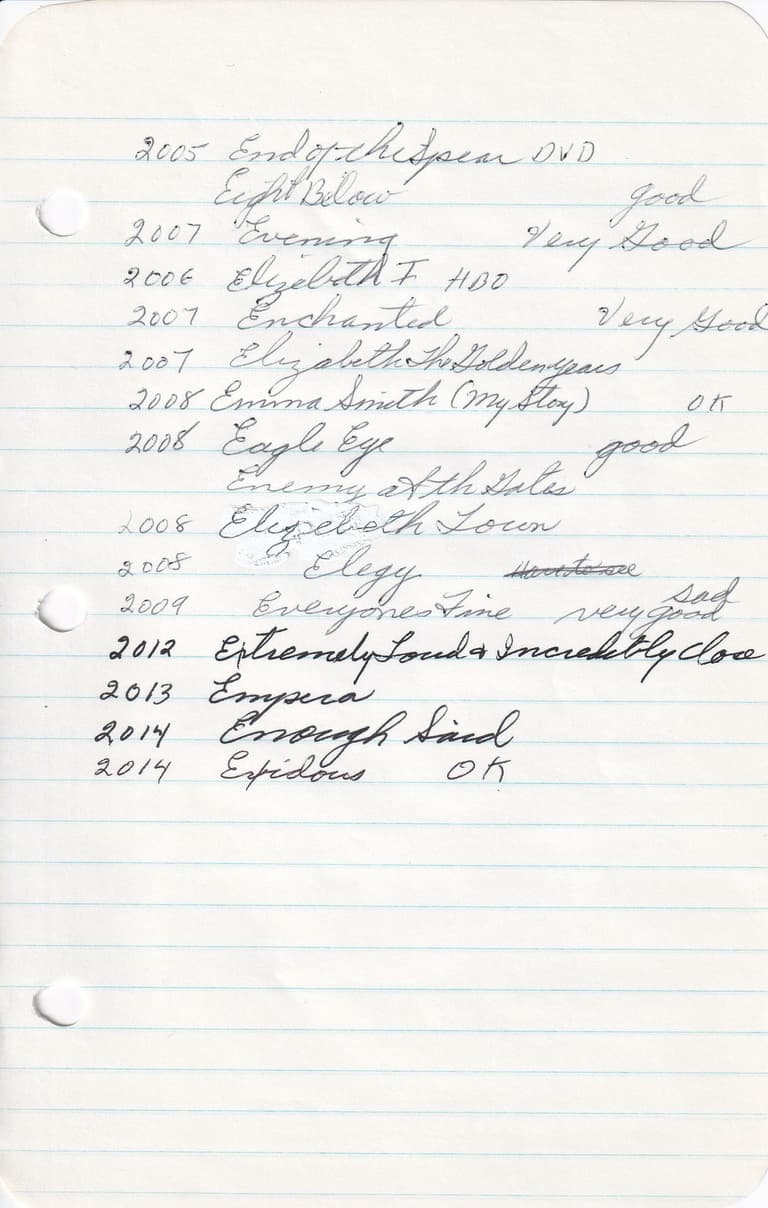 2005 End of the Spear DVD
Eight Below good
2007 Evening Very Good
2006 Elizebeth I HBO
2007 Enchanted Very Good
2007 Elizabeth The Golden years
2008 Emma Smith (My Story) OK
2008 Eagle Eye good
Enemy at th Gates
2008 Elizebeth Town
2008 Elegy
sad
2009 Everyones Fine very good
2012 Extremely Loud & Incredibly Close
2013 Empera
2014 Enough Said
2014 Exidous OK